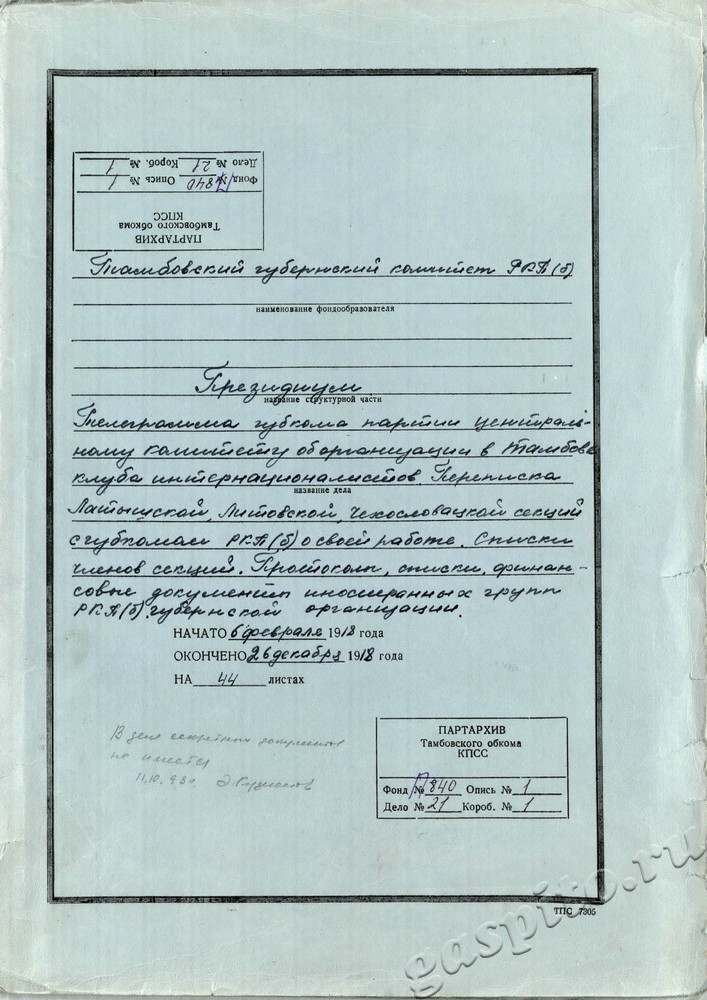 ПАРТАРХИВ
Тамбовского обкома
КПСС
Фонд № П840 Опись № 1
Дело № 21 Короб. № 1
Тамбовский губернский комитет РКП(б)
наименование фондообразователя
Президиум
название структурной части
Телеграмма губкома партии централь-
ному комитету об организации в Тамбове
клуба интернационалистов. Переписка
название дела
Латышской, Литовской, Чехословацкой секций
с губкомом РКП(б) о своей работе. Списки
членов секций. Протоколы, списки, финан-
совые документы иностранных групп
РКП(б) губернской организации.
НАЧАТО 6 февраля 1918 года
ОКОНЧЕНО 26 декабря 1918 года
НА 44 листах
В деле секретных документов
не имеется
11.10.93г.
ПАРТАРХИВ
Тамбовского обкома
КПСС
Фонд № П840 Опись № 1
Дело № 21 Короб. № 1
ТПС 7305
gaspito.ru